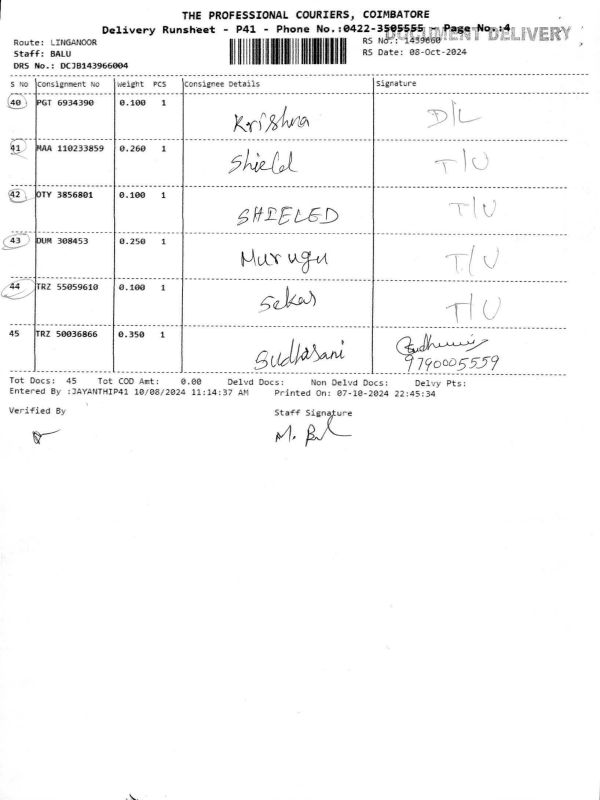 THE PROFESSIONAL COURIERS, COIMBATORE
Delivery Runsheet - P41 - Phone No.:0422-3505555 - Page No.:4
DOCUMENT DELIVERY
Route: LINGANOOR
RS No.: 1439660
Staff: BALU
RS Date: 08-Oct-2024
DRS No.: DCJB143966004
S No Consignment No Weight PCS Consignee Details Signature
40 PGT 6934390 0.100 1
Krishna D/L
41 MAA 110233859 0.260 1
Shield T/U
42 OTY 3856801 0.100 1
SHIELED T/U
43 DUM 308453 0.250 1
Murugu T/U
44 TRZ 55059610 0.100 1
Sekar T/U
45 TRZ 50036866 0.350 1
Sudhasani
9790005559
Tot Docs: 45 Tot COD Amt: 0.00 Delvd Docs: Non Delvd Docs: Delvy Pts:
Entered By :JAYANTHIP41 10/08/2024 11:14:37 AM Printed On: 07-10-2024 22:45:34
Verified By Staff Signature